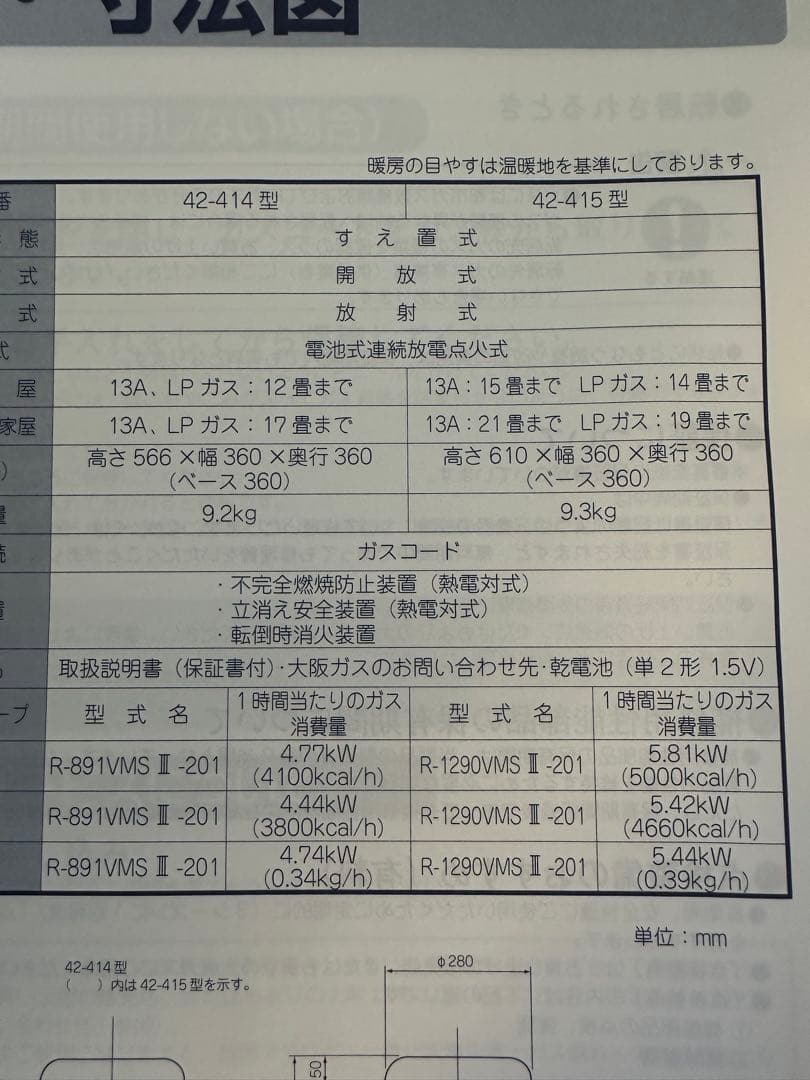 ・寸法図
暖房の目やすは温暖地を基準にしております。
番 42-414型 42-415型
態 すえ置式
式 開放式
式 放射式
式 電池式連続放電点火式
屋 13A、LPガス：12畳まで 13A：15畳まで LPガス：14畳まで
家屋 13A、LPガス：17畳まで 13A：21畳まで LPガス：19畳まで
) 高さ566×幅360×奥行360 高さ610×幅360×奥行360
（ベース360） （ベース360）
量 9.2kg 9.3kg
続 ガスコード
置 ・不完全燃焼防止装置（熱電対式）
・立消え安全装置（熱電対式）
・転倒時消火装置
取扱説明書（保証書付）・大阪ガスのお問い合わせ先・乾電池（単2形 1.5V）
ープ 型式名 1時間当たりのガス 型式名 1時間当たりのガス
消費量 消費量
R-891VMSⅢ-201 4.77kW R-1290VMSⅢ-201 5.81kW
(4100kcal/h) (5000kcal/h)
R-891VMSⅢ-201 4.44kW R-1290VMSⅢ-201 5.42kW
(3800kcal/h) (4660kcal/h)
R-891VMSⅢ-201 4.74kW R-1290VMSⅢ-201 5.44kW
(0.34kg/h) (0.39kg/h)
単位：mm
42-414型
（　）内は42-415型を示す。
φ280
50